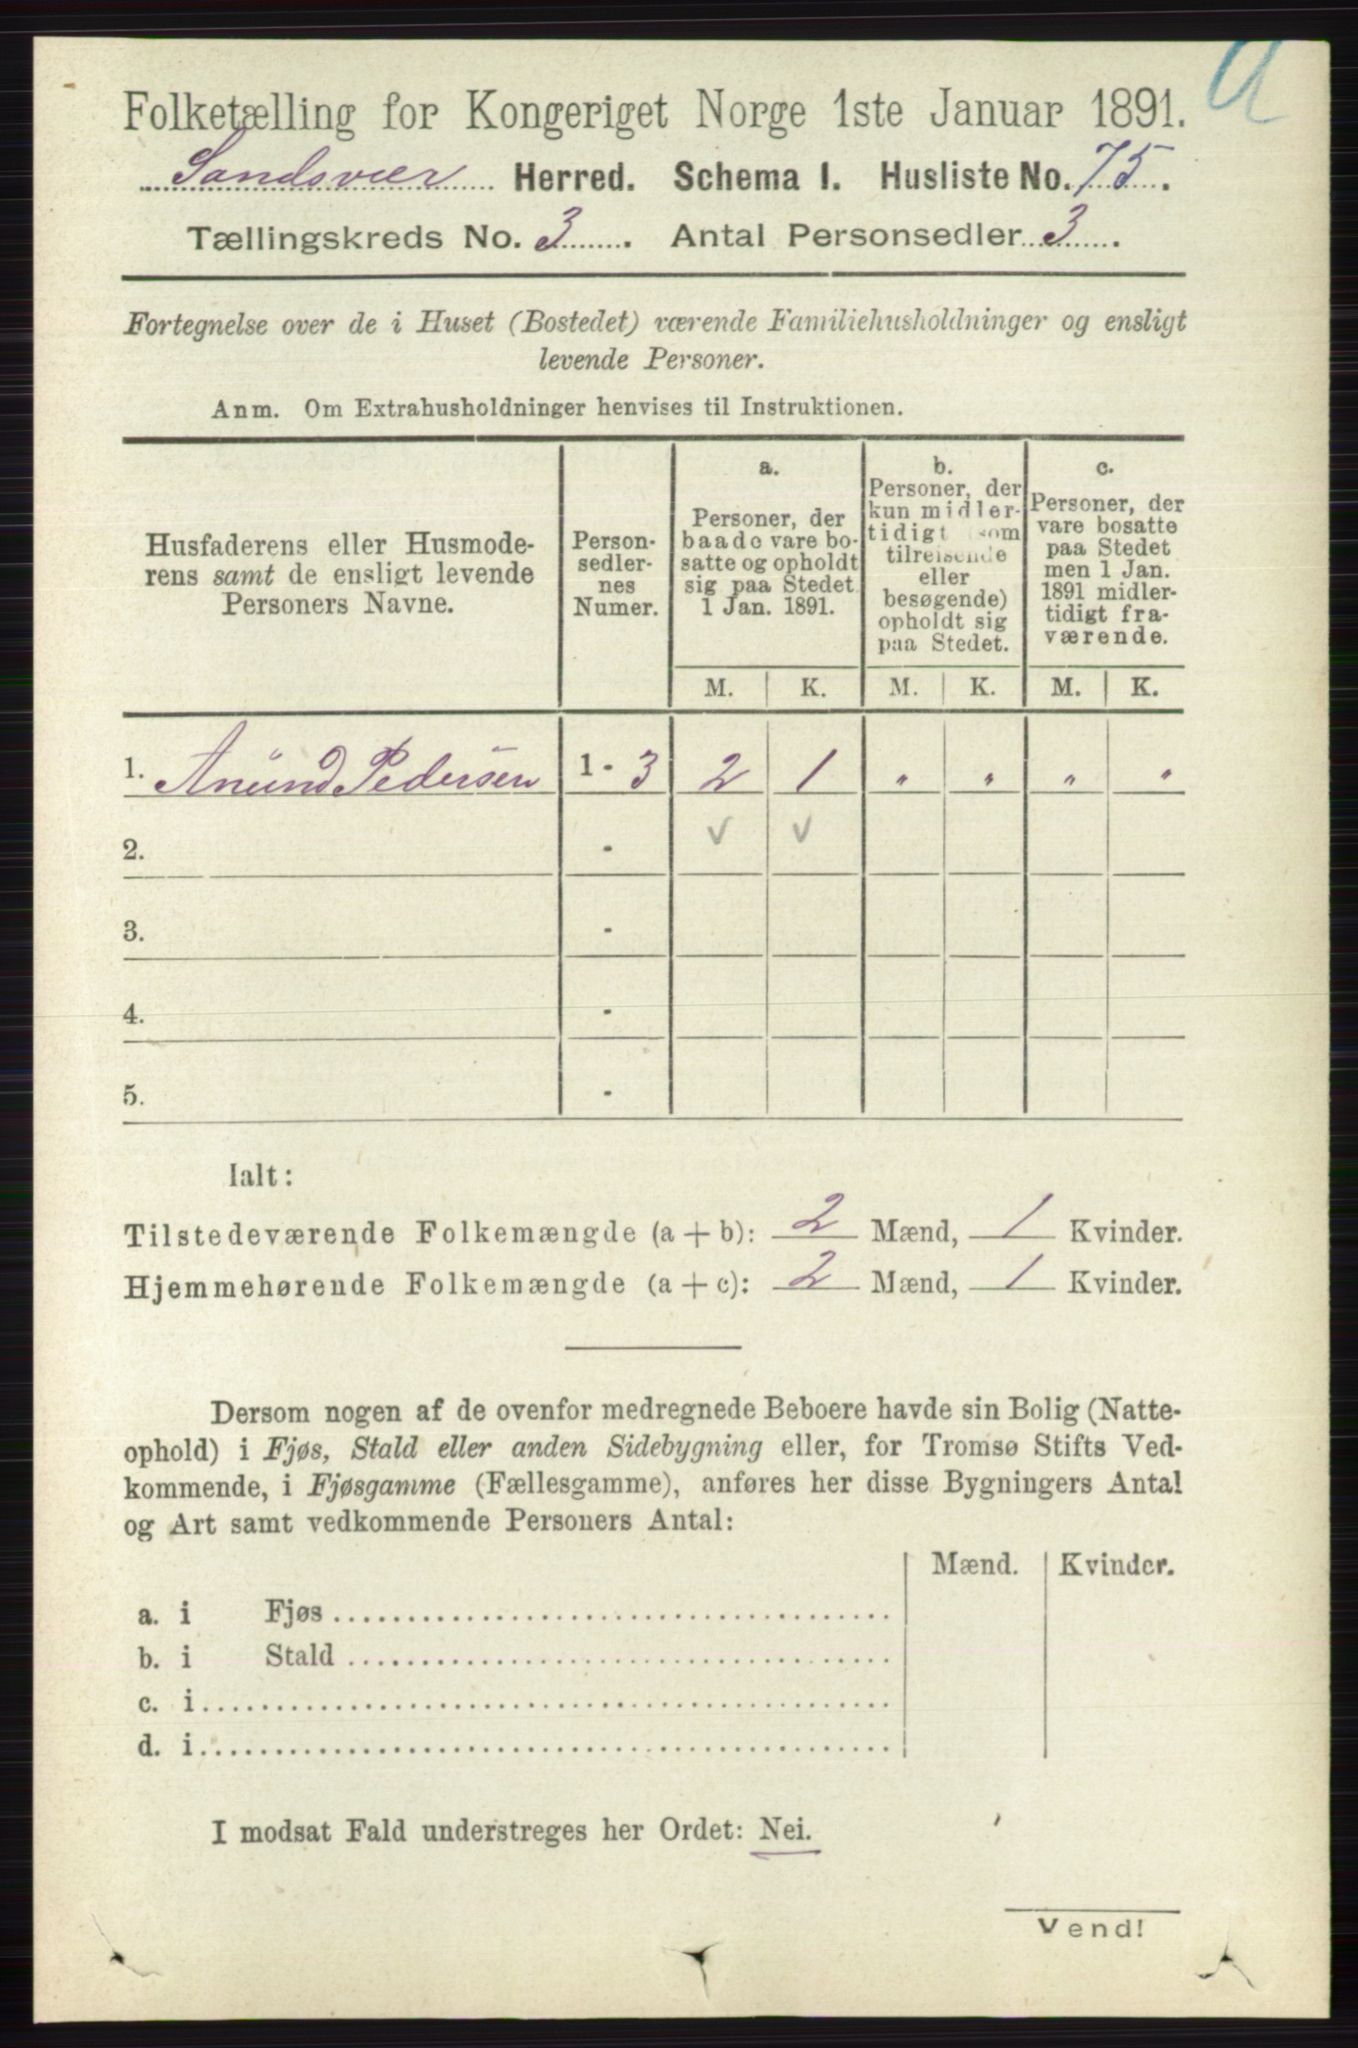 a
Folketælling for Kongeriget Norge 1ste Januar 1891.
Sandsvær Herred. Schema I. Husliste No. 75.
Tællingskreds No. 3. Antal Personsedler 3.
Fortegnelse over de i Huset (Bostedet) værende Familiehusholdninger og ensligt
levende Personer.
Anm. Om Extrahusholdninger henvises til Instruktionen.
Husfaderens eller Husmode-
rens samt de ensligt levende
Personers Navne.
Person-
sedler-
nes
Numer.
a.
Personer, der
baade vare bo-
satte og opholdt
sig paa Stedet
1 Jan. 1891.
b.
Personer, der
kun midler-
tidigt (som
tilreisende
eller
besøgende)
opholdt sig
paa Stedet.
c.
Personer, der
vare bosatte
paa Stedet
men 1 Jan.
1891 midler-
tidigt fra-
værende.
M. K. M. K. M. K.
1. Anund Pedersen 1 - 3 2 1 " " " "
2. - v v
3. -
4. -
5. -
Ialt:
Tilstedeværende Folkemængde (a + b): 2 Mænd, 1 Kvinder.
Hjemmehørende Folkemængde (a + c): 2 Mænd, 1 Kvinder.
Dersom nogen af de ovenfor medregnede Beboere havde sin Bolig (Natte-
ophold) i Fjøs, Stald eller anden Sidebygning eller, for Tromsø Stifts Ved-
kommende, i Fjøsgamme (Fællesgamme), anføres her disse Bygningers Antal
og Art samt vedkommende Personers Antal:
Mænd. Kvinder.
a. i Fjøs
b. i Stald
c. i
d. i
I modsat Fald understreges her Ordet: Nei.
Vend!